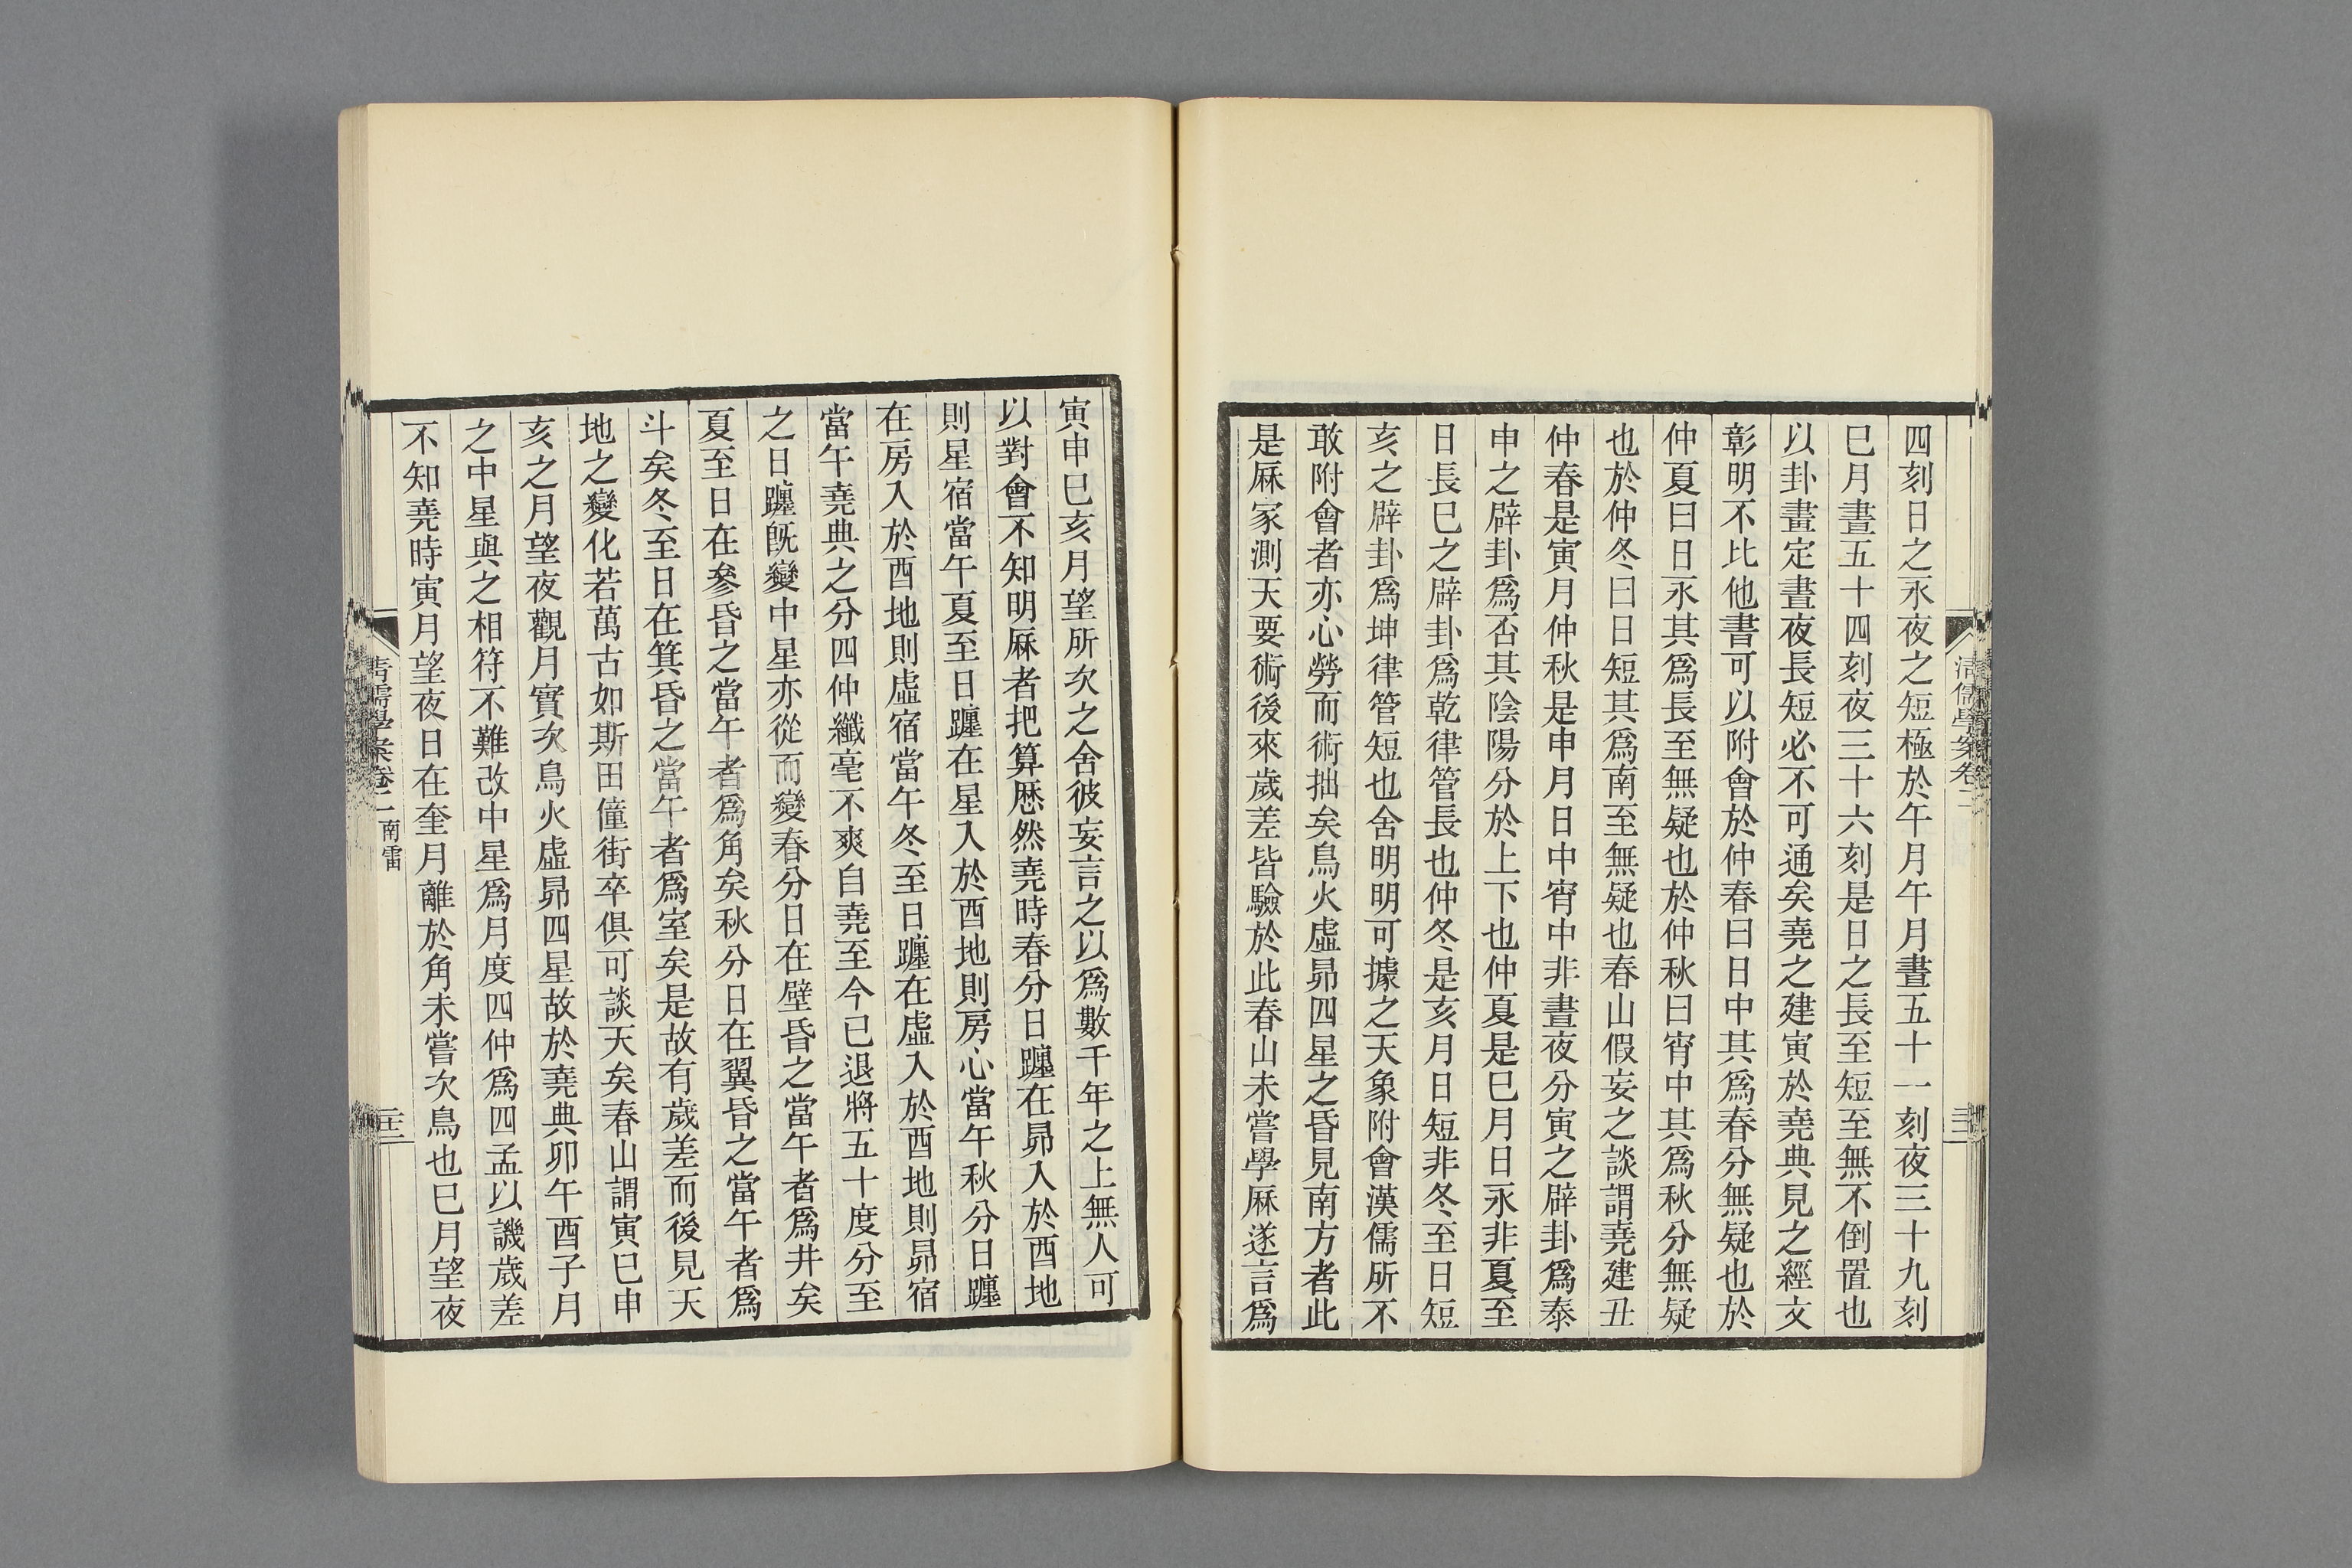 四刻日之永夜之短極於午月午月晝五十一刻夜三十九刻
巳月晝五十四刻夜三十六刻是日之長至短至無不倒置也
以卦畫定晝夜長短必不可通矣堯之建寅於堯典見之經文
彰明不比他書可以附會於仲春曰日中其爲春分無疑也於
仲夏曰日永其爲長至無疑也於仲秋曰宵中其爲秋分無疑
也於仲冬曰日短其爲南至無疑也春山假妄之談謂堯建丑
仲春是寅月仲秋是申月日中宵中非晝夜分寅之辟卦爲泰
申之辟卦爲否其陰陽分於上下也仲夏是巳月日永非夏至
日長巳之辟卦爲乾律管長也仲冬是亥月日短非冬至日短
亥之辟卦爲坤律管短也舍明明可據之天象附會漢儒所不
敢附會者亦心勞而術拙矣鳥火虛昴四星之昏見南方者此
是厤家測天要術後來歲差皆驗於此春山未嘗學厤遂言爲
寅申巳亥月望所次之舍彼妄言之以爲數千年之上無人可
以對會不知明厤者把算厯然堯時春分日躔在昴入於酉地
則星宿當午夏至日躔在星入於酉地則房心當午秋分日躔
在房入於酉地則虛宿當午冬至日躔在虛入於酉地則昴宿
當午堯典之分四仲纖毫不爽自堯至今已退將五十度分至
之日躔旣變中星亦從而變春分日在壁昏之當午者爲井矣
夏至日在參昏之當午者爲角矣秋分日在翼昏之當午者爲
斗矣冬至日在箕昏之當午者爲室矣是故有歲差而後見天
地之變化若萬古如斯田僮街卒俱可談天矣春山謂寅巳申
亥之月望夜觀月實次鳥火虛昴四星故於堯典卯午酉子月
之中星與之相符不難改中星爲月度四仲爲四孟以譏歲差
不知堯時寅月望夜日在奎月離於角未嘗次鳥也巳月望夜
清儒學案卷二
清儒學案卷二 南雷